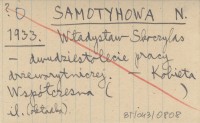 ? O SAMOTYHOWA N.
1933. Władysław Skoczylas
– dwudziestolecie pracy
drzeworytniczej. – Kobieta
Współczesna (     )
il. (
87/043/0808